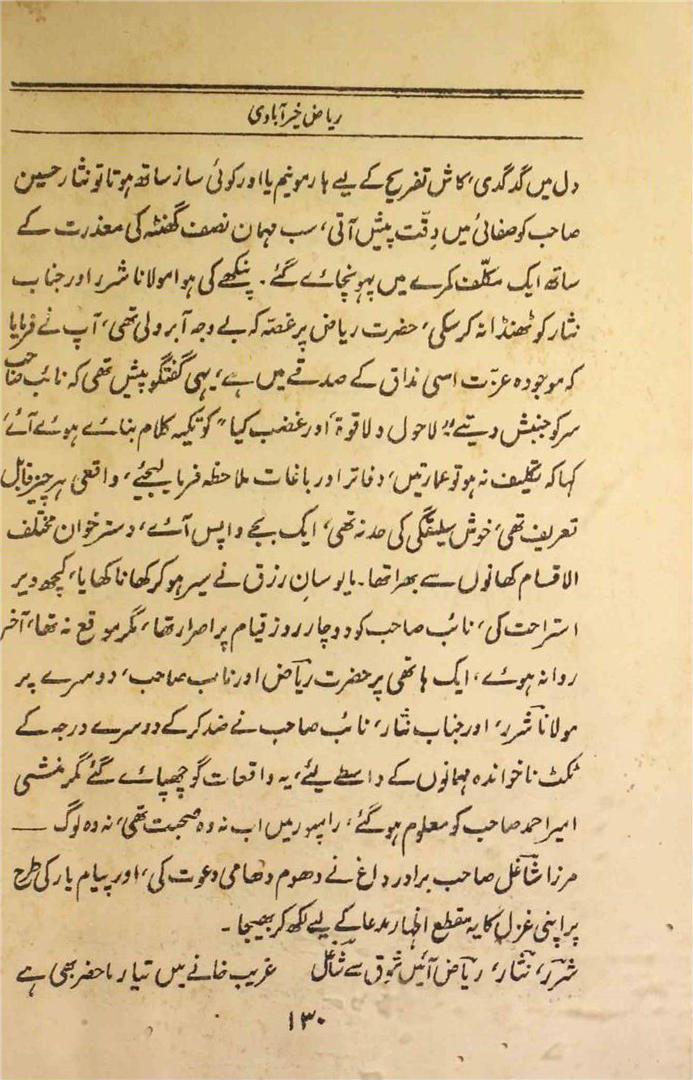 ریاض خیرآبادی
دل میں گدگدی، کاش تفریح کے لیے ہارمونیم یا اور کوئی ساز ساتھ ہوتا تو نثار حسین
صاحب کو صفائی میں دِقّت پیش آتی، سب مہمان نصف گھنٹہ کی معذرت کے
ساتھ ایک مکلّف کمرے میں پہونچائے گئے۔ پنکھے کی ہوا مولانا شرر اور جناب
نثار کو ٹھنڈا نہ کرسکی، حضرت ریاض پر غصّہ کہ بے وجہ آبرو لی تھی، آپ نے فرمایا
کہ موجودہ عزّت اسی مذاق کے صدقے میں ہے، یہی گفتگو پیش تھی کہ نائب صاحب
سر کو جنبش دیتے "لاحول ولاقوۃ، اور غضب کیا" کو تکیہ کلام بنائے ہوئے آئے،
کہا کہ تکلیف نہ ہو تو عمارتیں، دفاتر اور باغات ملاحظہ فرمالیجئے، واقعی ہر چیز قابل
تعریف تھی، خوش سلیقگی کی حد نہ تھی، ایک بجے واپس آئے، دسترخوان مختلف
الاقسام کھانوں سے بھرا تھا۔ مایوسانِ رزق نے سیر ہوکر کھانا کھایا، کچھ دیر
استراحت کی، نائب صاحب کو دوچار روز قیام پر اصرار تھا، مگر موقع نہ تھا، آخر
روانہ ہوئے، ایک ہاتھی پر حضرت ریاض اور نائب صاحب، دوسرے پر
مولانا شرر، اور جناب نثار، نائب صاحب نے ضد کرکے دوسرے درجہ کے
ٹکٹ ناخواندہ مہمانوں کے واسطے لئے، یہ واقعات گو چھپائے گئے مگر منشی
امیر احمد صاحب کو معلوم ہوگئے، رامپور میں اب نہ وہ صحبت تھی، نہ وہ لوگ —
مرزا شاغل صاحب برادر داغ نے دھوم دھامی دعوت کی، اور پیام یار کی طرح
پر اپنی غزل کا یہ مقطع اظہار مدعا کے لیے لکھ کر بھیجا۔
شرر، نثار، ریاض آئیں شوق سے شاغل غریب خانے میں تیار ماحضر بھی ہے
۱۳۰